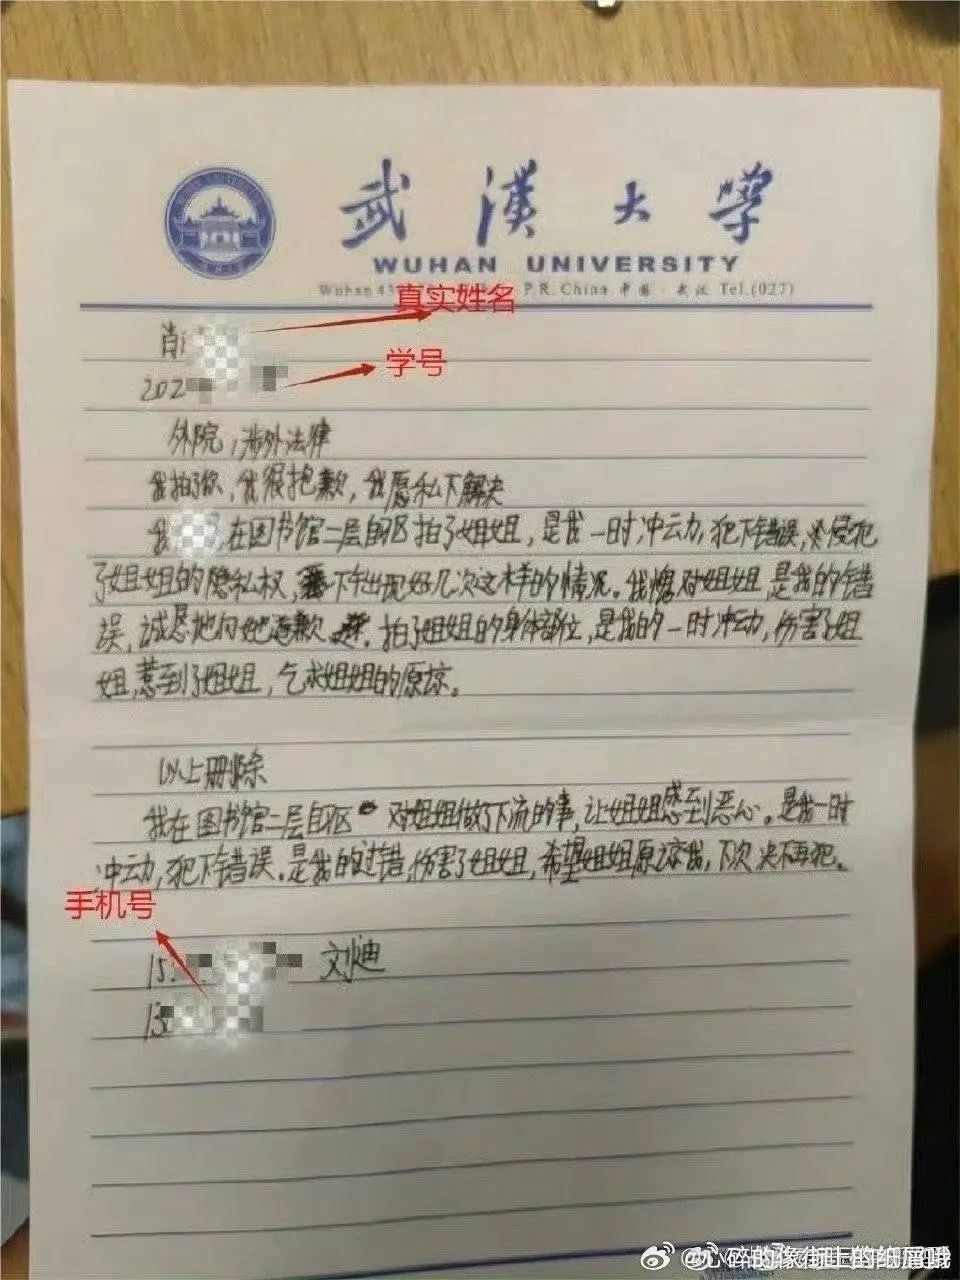 武漢大学
WUHAN UNIVERSITY
Wuhan 43 P.R. China 中国·武汉 Tel.(027)
真实姓名
肖
学号
202
外院,涉外法律
我拍了你,我很抱歉,我愿私下解决
我 在图书馆二层自区拍了姐姐,是我一时冲动,犯下错误,侵犯
了姐姐的隐私权, 下午出现好几次这样的情况。我愧对姐姐,是我的错
误,诚恳地向她道歉 。拍了姐姐的身体部位,是我的一时冲动,伤害了姐
姐,惹到了姐姐,乞求姐姐的原谅。
以上删除
我在图书馆二层自区 对姐姐做了下流的事,让姐姐感到恶心。是我一时
冲动,犯下错误。是我的过错,伤害了姐姐,希望姐姐原谅我,下次决不再犯。
手机号
15 刘迪
13